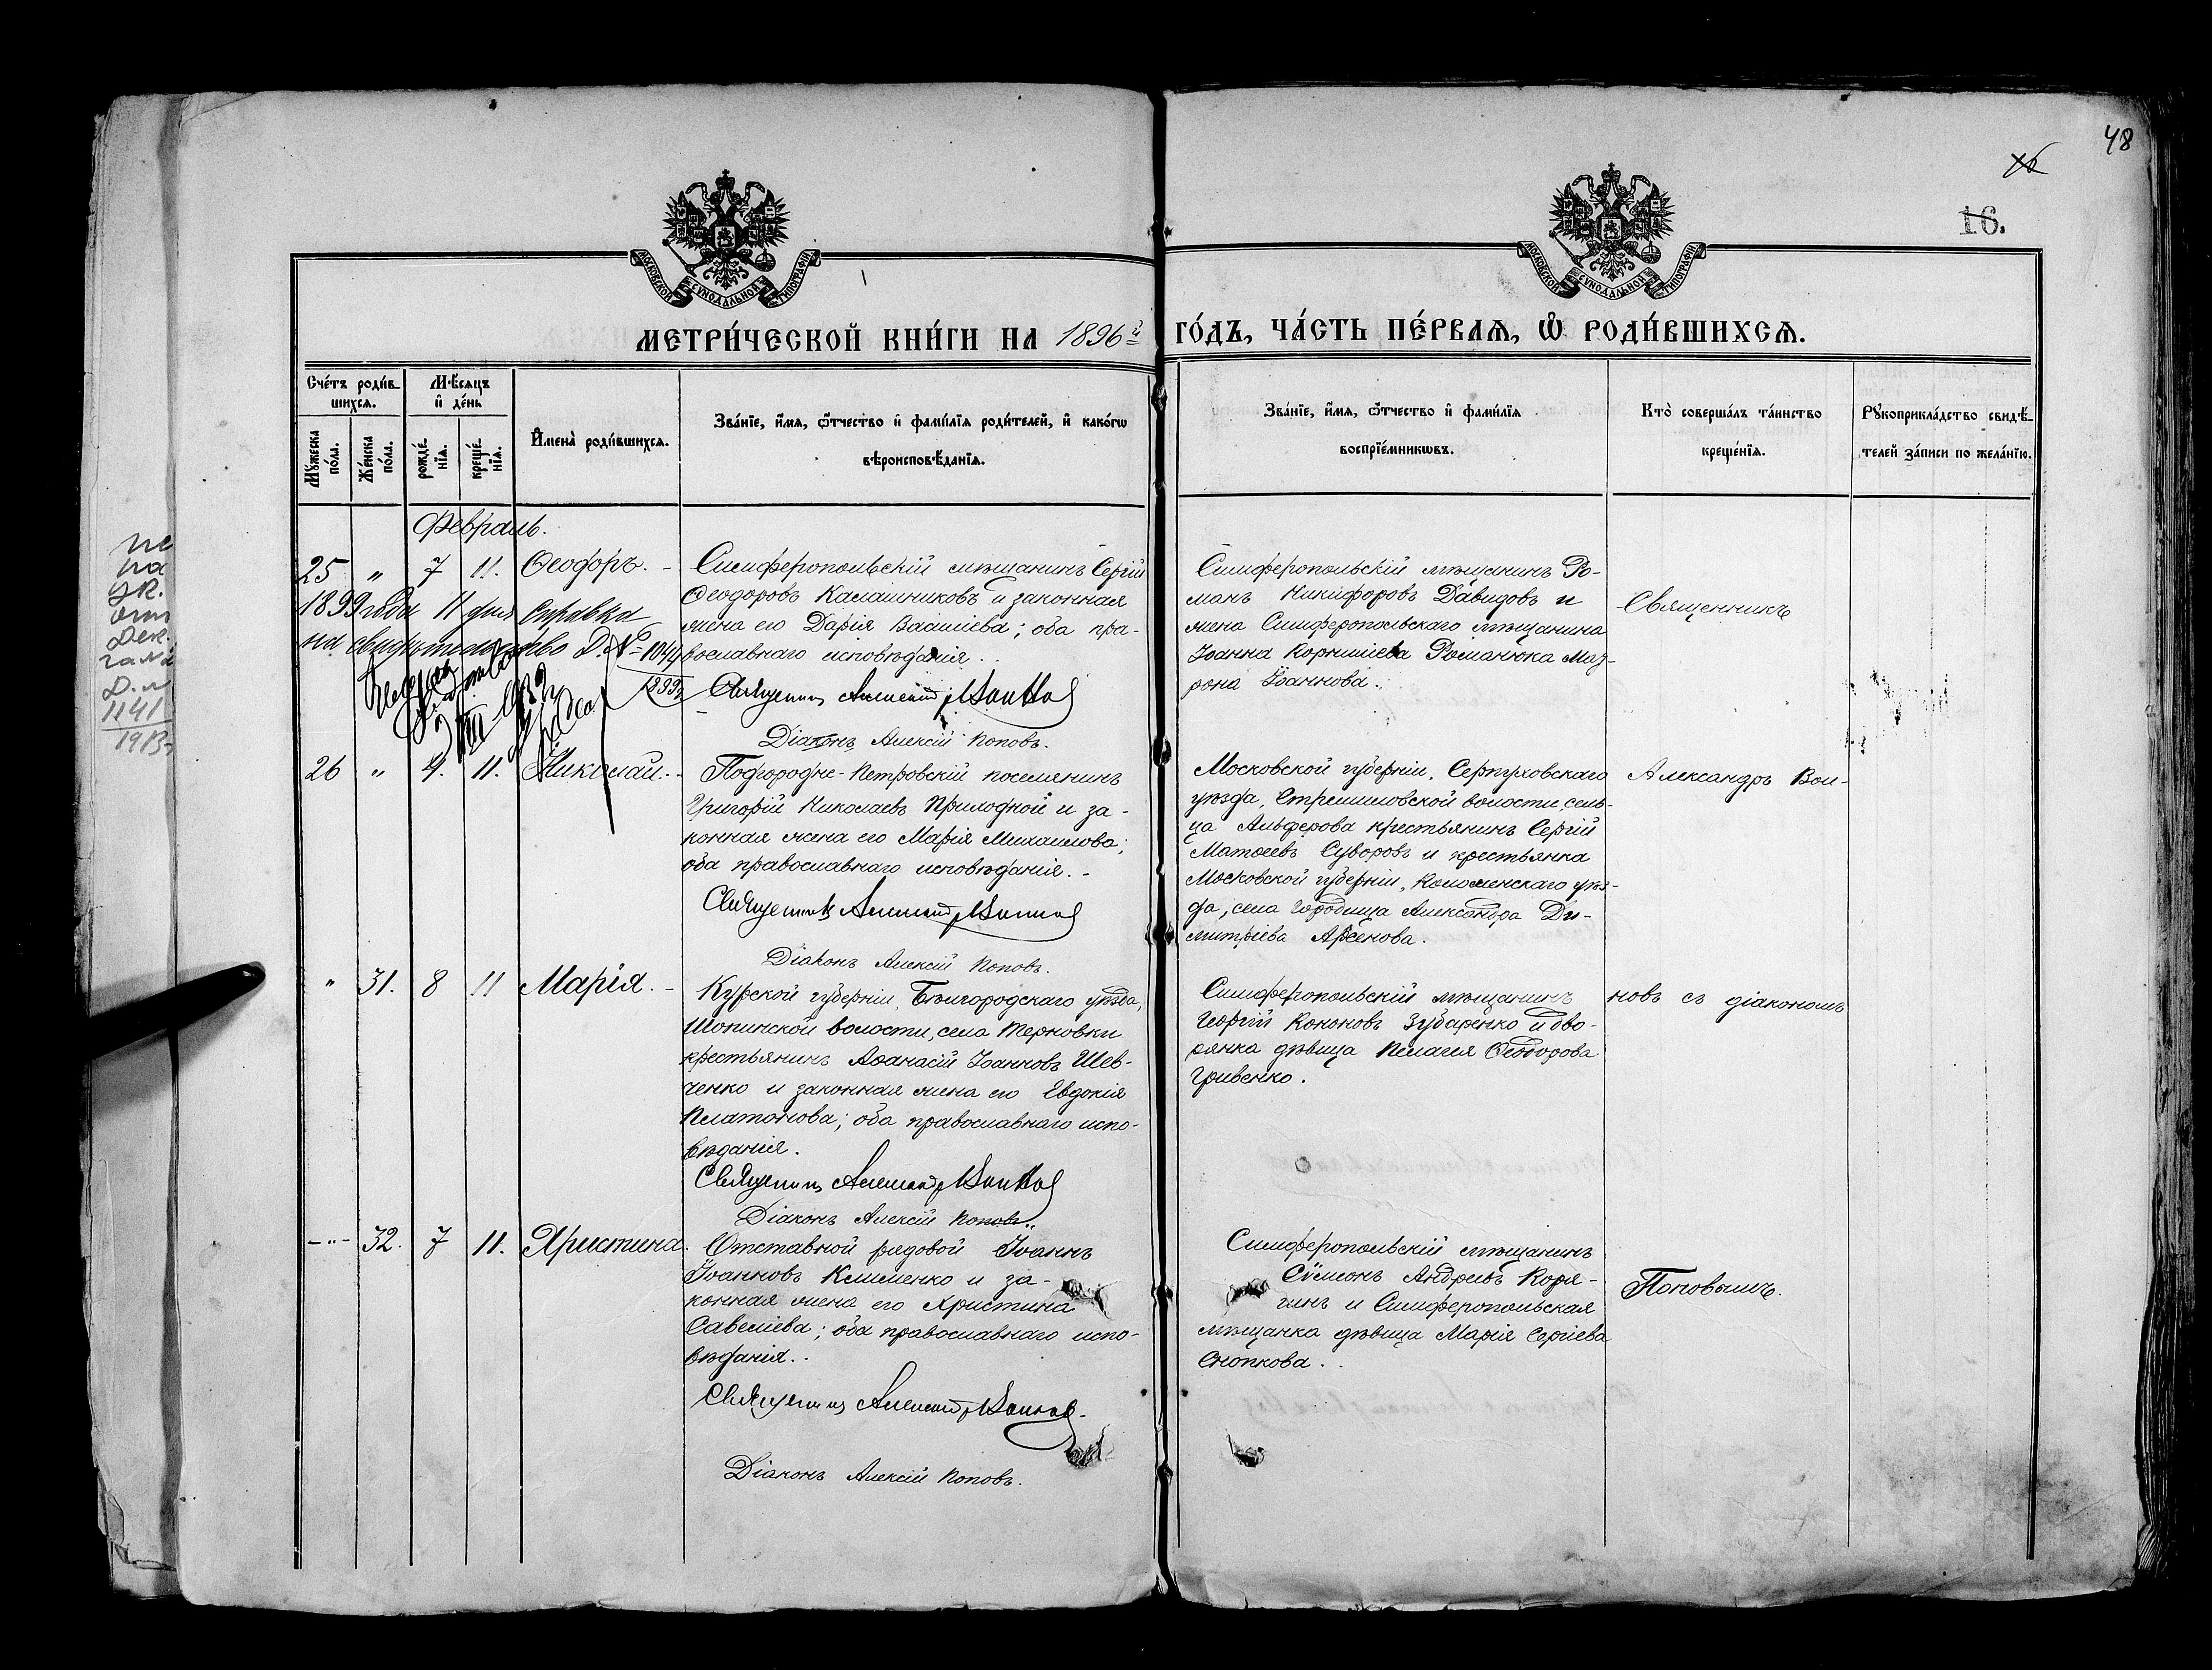 48
16.
МОСКОВСКОЙ СѴНОДАЛЬНОЙ ТИПОГРАФІИ
МОСКОВСКОЙ СѴНОДАЛЬНОЙ ТИПОГРАФІИ
МЕТРИ́ЧЕСКОЙ КНИ́ГИ НА 1896й
ГО́ДЪ, ЧА́СТЬ ПЕ́РВАЯ, Ѿ РОДИ́ВШИХСЯ.
Сче́тъ роди́в-
шихся.
Мꙋ́жеска по́ла.
Же́нска по́ла.
Мѣ́сяцъ
и҆ де́нь
рожде́нія.
креще́нія.
И҆мена̀ роди́вшихся.
Зва́нїе, и҆́мя, ѻ҆́тчество и҆ фамилїя роди́телей, и҆ како́гѡ
вѣроисповѣ́данїя.
Зва́нїе, и҆́мя, ѻ҆́тчество и҆ фами́лїя
воспрїе́мникѡвъ.
Кто̀ соверша́лъ та́инство
креще́нїя.
Рꙋкоприкла́дство свидѣ́-
телей за́писи по жела́нїю.
Февраль.
25 " 7 11. Ѳеодоръ. -
Симферопольскій мѣщанинъ Сергій
Ѳеодоровъ Калашниковъ и законная
жена его Дарія Василіева; оба пра-
вославнаго исповѣданія.
Священникъ Александръ
Діаконъ Алексій Поповъ.
1899 года 11 дня справка
на свидѣтельство № 1044
Симферопольскій мѣщанинъ Ро-
манъ Никифоровъ Давидовъ и
жена Симферопольскаго мѣщанина
Іоанна Корниліева Романюка Мат-
рона Іоаннова.
Священникъ
26 " 9. 11. Николай. -
Подгородне-Петровскій поселянинъ
Григорій Николаевъ Приходкой и за-
конная жена его Марія Михаилова;
оба православнаго исповѣданія. -
Священникъ Александръ
Діаконъ Алексій Поповъ.
Московской губерніи, Серпуховскаго
уѣзда, Стремиловской волости, сель-
ца Алферова крестьянинъ Сергій
Матѳеевъ Суворовъ и крестьянка
Московской губерніи, Коломенскаго уѣз-
да, села Городища Александра Ди-
митріева Арсенова.
Александръ Вои-
" 31. 8 11 Марія. -
Курской губерніи, Бѣлгородскаго уѣзда,
Шопинской волости, села Терновки
крестьянинъ Аѳанасій Іоанновъ Шев-
ченко и законная жена его Евдокія
Платонова; оба православнаго испо-
вѣданія.
Священникъ Александръ
Діаконъ Алексій Поповъ.
Симферопольскій мѣщанинъ
Георгій Кононовъ Зубаренко и дво-
рянка дѣвица Пелагія Ѳеодорова
Гривенко.
новъ съ діакономъ
- " - 32. 7 11. Христина.
Отставной рядовой Іоаннъ
Іоанновъ Клименко и за-
конная жена его Христина
Савеліева; оба православнаго испо-
вѣданія.
Священникъ Александръ
Діаконъ Алексій Поповъ.
Симферопольскій мѣщанинъ
Сѵмеонъ Андреевъ Коря-
гинъ и Симферопольская
мѣщанка дѣвица Марія Сергіева
Снопкова.
Поповымъ.
1141